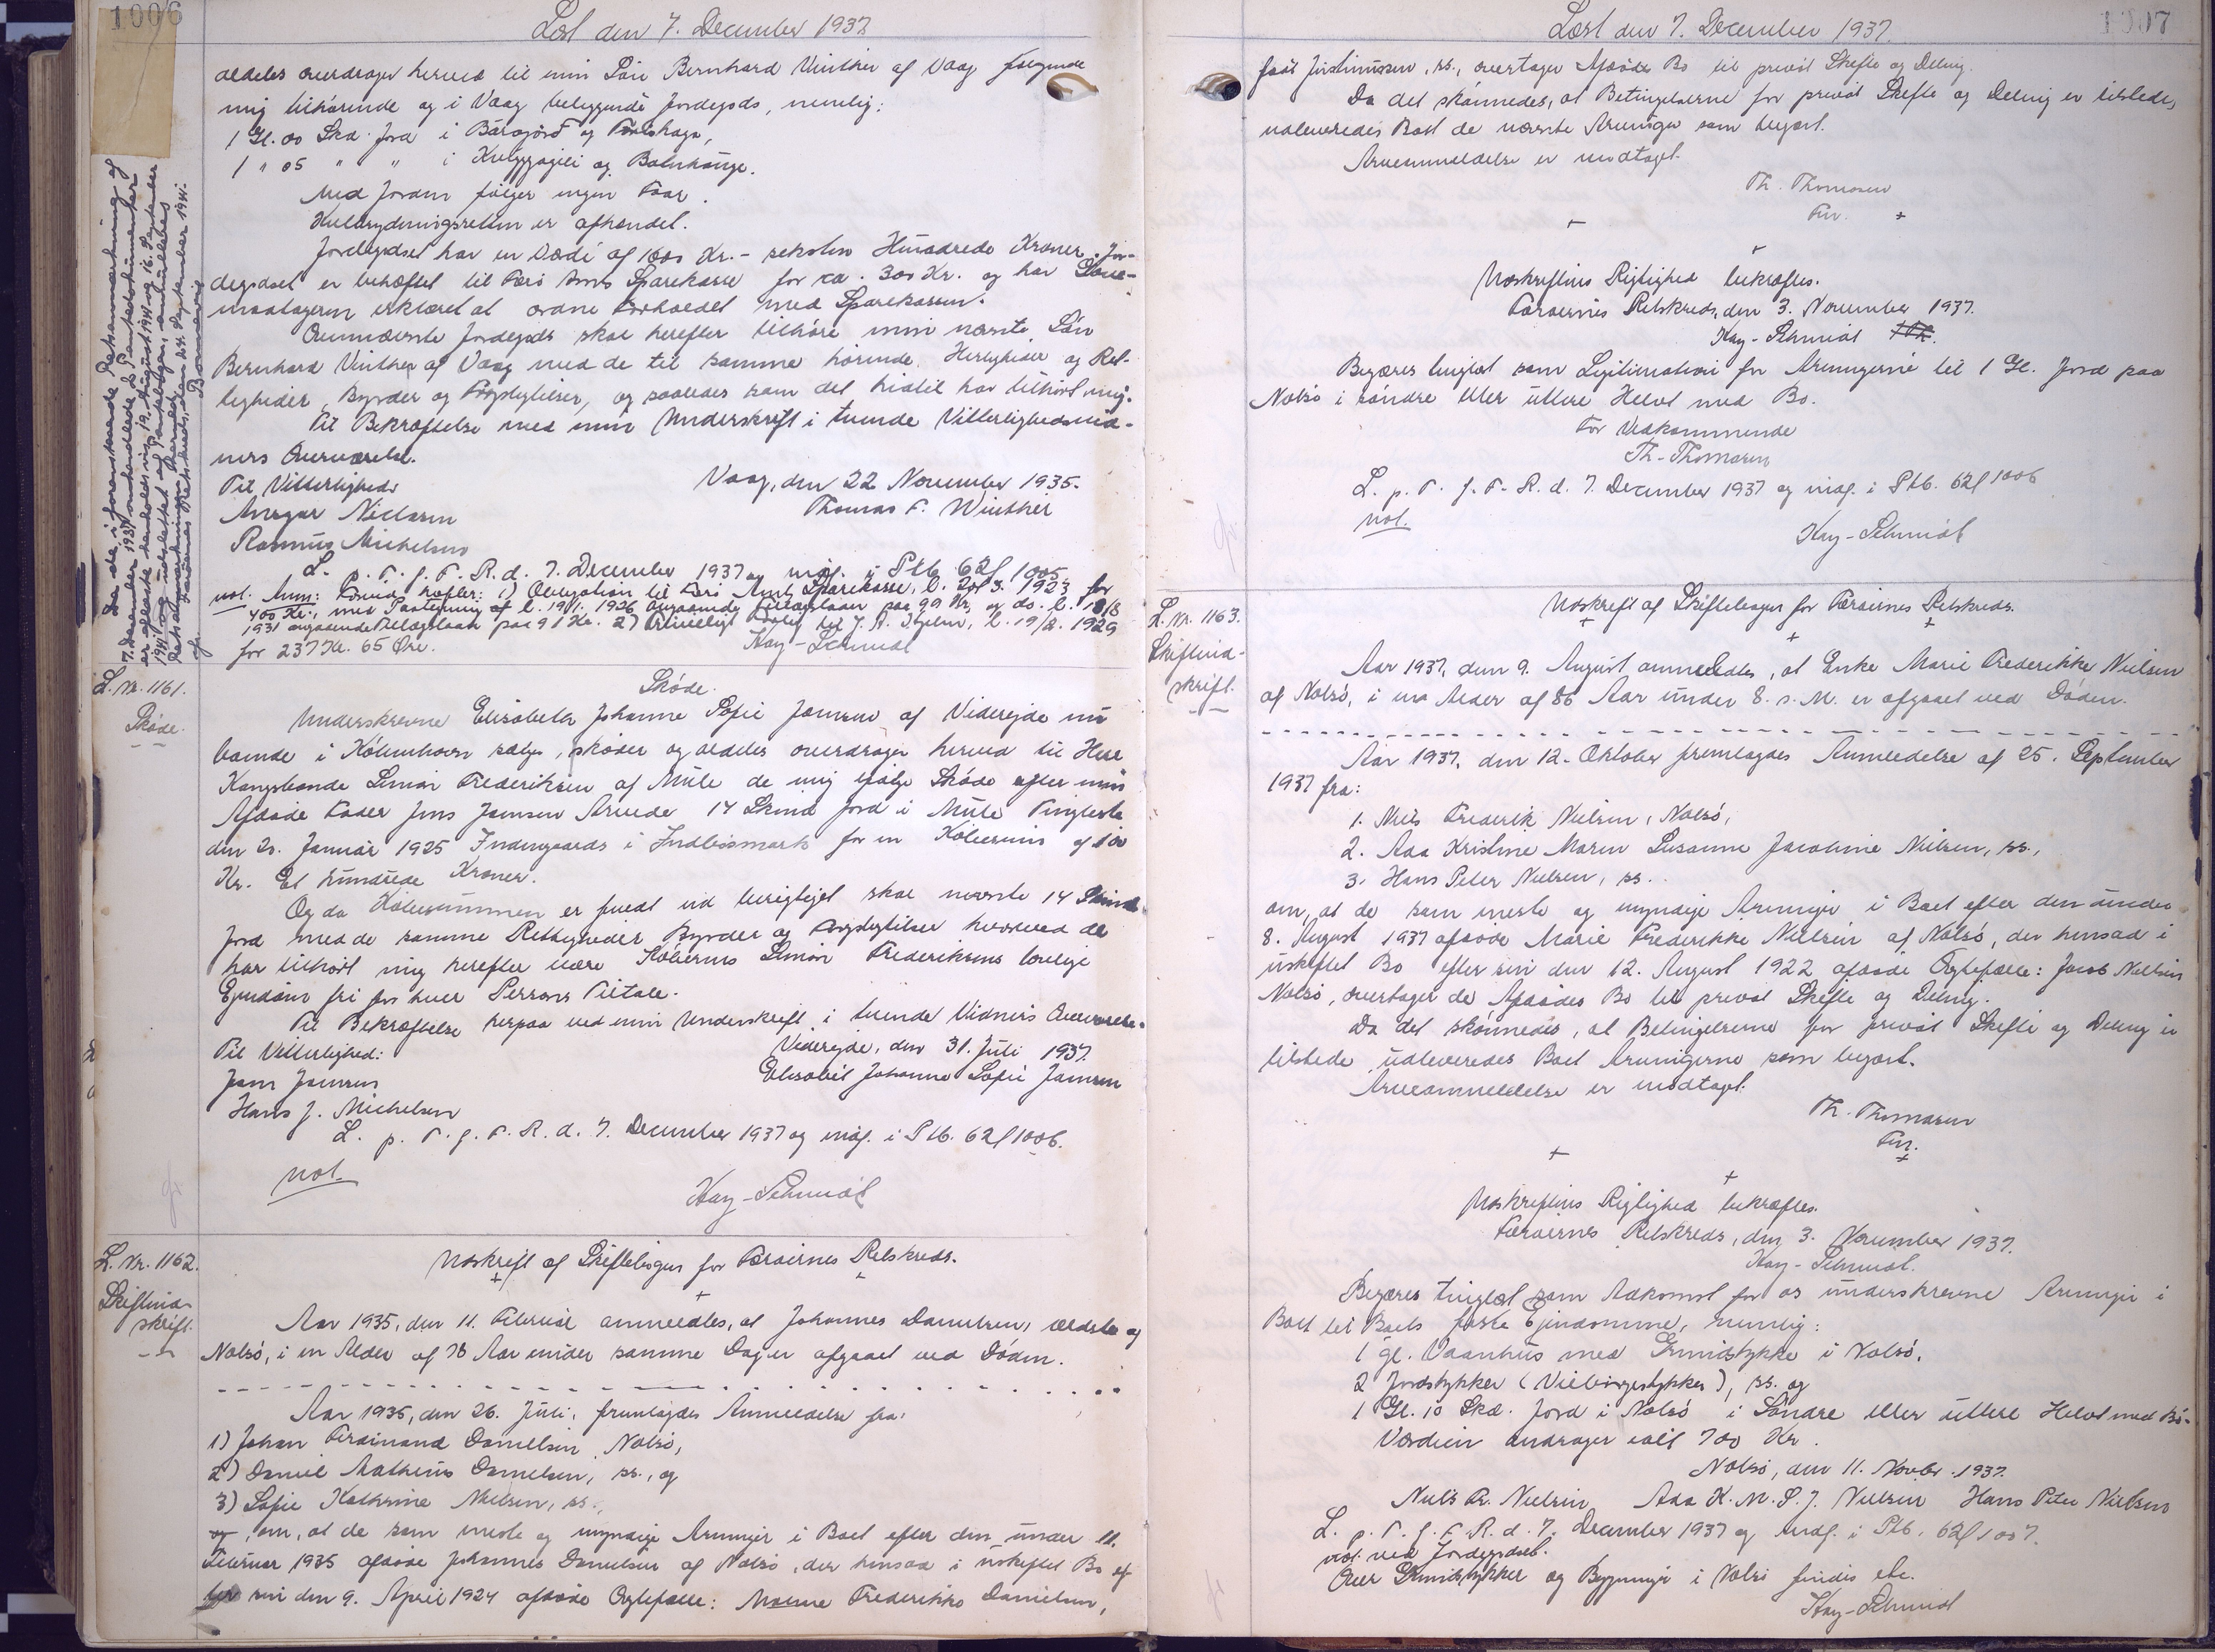 1006
Læst den 7. December 1937.
aldeles overdrager herved til min Søn Bernhard Vinther af Vaag følgende
mig tilhørende og i Vaag beliggende Jordegods, nemlig:
1 Gl. 00 Skd. Jord i
1 " 05 " " i og
Med Jorden følger ingen Faar.
er afhændet.
Jordegodset har en Værdi af 1600 Kr. - seksten Hundrede Kroner. Jor-
degodset er behæftet til Færø Amts Sparekasse for ca. 300 Kr. og har Skøde-
modtageren erklæret at ordne Forholdet med Sparekassen.
Ovennævnte Jordegods skal herefter tilhøre min nævnte Søn
Bernhard Vinther af Vaag med de til samme hørende Herligheder og Ret-
tigheder, Byrder og Forpligtelser, og saaledes som det hidtil har tilhørt mig.
Til Bekræftelse med min Underskrift i tvende Vitterlighedsvid-
ners Overværelse.
Vaag, den 22 November 1935.
Til Vitterlighed:
Thomas F. Winther
Ansgar
Rasmus Michelsen
L. p. T. f. F. R. d. 7. December 1937 og indf. i Ptb. 62 f 1005
not. Anm: Forud hæfter: 1) Obligation til Færø Amts Sparekasse, l. 1923 for
400 Kr., med Paategning af l. 19/1. 1926 angaaende Tillægslaan paa 99 Kr. og do. l. 18/8
1931 angaaende Tillægslaan paa 91 Kr. 2) l. 19/8. 1929
for 237 Kr. 65 Øre.
Kay-Schmidt
L. Nr. 1161.
Skøde.
Skøde.
Underskrevne Elisabeth Johanne Sofie Joensen af Viderejde nu
boende i København sælge, skøder og aldeles overdrager herved til Herr
Kongsbonde Simon Frederiksen af Mule de mig ifølge Skøde efter min
Afdøde Fader Jens Joensen Arvede 14 Skind Jord i Mule Tinglæste
den 20. Januar 1925 Indengaards i Indbøsmark for en Købesum af 100
Kr. Et hundrede Kroner.
Og da Købesummen er fuldt ud berigtiget skal nævnte 14 Skind
Jord med de samme Rettigheder Byrder og Forpligtelser hvorved de
har tilhørt mig herefter være Køberens Simon Frederiksens lovlige
Ejendom fri for hver Persons Tiltale.
Til Bekræftelse herpaa ved min Underskrift i tvende Vidners Overværelse.
Viderejde, den 31. Juli 1937.
Til Vitterlighed:
Elisabet Johanne Sofie Joensen
Joen Joensen
Hans J. Michelsen
L. p. T. f. F. R. d. 7. December 1937 og indf. i Ptb. 62 f 1006.
not.
Kay-Schmidt
L. Nr. 1162.
Skifteud-
skrift.
Udskrift af Skiftebogen for Færøernes Retskreds.
Aar 1935, den 11. Februar anmeldtes, at Johannes Danielsen, ældste af
Nolsø, i en Alder af 78 Aar under samme Dag er afgaaet ved Døden.
Aar 1935, den 26. Juli, fremlagdes Anmeldelse fra:
1) Johan Ferdinand Danielsen Nolsø,
2) Daniel Mathæus Danielsen, ss., og
3) Sofie Kathrine Nielsen, ss.,
og, om, at de som eneste og myndige Arvinger i Boet efter den under 11.
Februar 1935 afdøde Johannes Danielsen af Nolsø, der hensad i uskiftet Bo ef-
ter sin den 9. April 1924 afdøde Ægtefælle: Frederikke Danielsen,
1007
Læst den 7. December 1937.
født Justinussen, ss., overtager Afdøde Bo til privat Skifte og Deling.
Da det skønnedes, at Betingelserne for privat Skifte og Deling er tilstede,
udleveredes Boet de nævnte Arvinger som begært.
Arveanmeldelse er modtaget.
Th. Thomsen
Fm.
Udskriftens Rigtighed bekræftes.
Færøernes Retskreds, den 3. November 1937.
Kay-Schmidt
Begæres tinglæst som Legitimation for Arvingerne til 1 Gl. Jord paa
Nolsø i søndre eller ydre Helvt med Bø.
For Vedkommende
Th. Thomsen
L. p. T. f. F. R. d. 7. December 1937 og indf. i Ptb. 62 f 1006
not.
Kay-Schmidt
L. Nr. 1163.
Skifteud-
skrift.
Udskrift af Skiftebogen for Færøernes Retskreds.
Aar 1937, den 9. August anmeldtes, at Enke Marie Frederikke Nielsen
af Nolsø, i en Alder af 86 Aar under 8. s. M. er afgaaet ved Døden.
Aar 1937, den 12. Oktober fremlagdes Anmeldelse af 25. September
1937 fra:
1. Niels Frederik Nielsen, Nolsø,
2. Ada Kristine Maren Susanne Jacobine Nielsen, ss.,
3. Hans Peter Nielsen, ss.
om, at de som eneste og myndige Arvinger i Boet efter den under
8. August 1937 afdøde Marie Frederikke Nielsen af Nolsø, der hensad i
uskiftet Bo efter sin den 12. August 1922 afdøde Ægtefælle: Jacob Nielsen
Nolsø, overtager de Afdødes Bo til privat Skifte og Deling.
Da det skønnedes, at Betingelserne for privat Skifte og Deling er
tilstede udleveredes Boet Arvingerne som begært.
Arveanmeldelse er modtaget.
Th. Thomsen
Fm.
Udskriftens Rigtighed bekræftes.
Færøernes Retskreds, den 3. November 1937.
Kay-Schmidt.
Begæres tinglæst som Adkomst for os underskrevne Arvinger i
Boet til Boets faste Ejendomme, nemlig:
1 gl. Vaanhus med Grundstykke i Nolsø,
2 Jordstykker ( ), ss. og
1 Gl. 10 Skd. Jord i Nolsø i Søndre eller ydre Helvt med Bø.
Værdien andrager ialt 700 Kr.
Nolsø, den 11. Novbr. 1937.
Niels Fr. Nielsen Ada K. M. S. J. Nielsen Hans Peter Nielsen
L. p. T. f. F. R. d. 7. December 1937 og indf. i Ptb. 62 f 1007.
not. ved Jordegodset.
Over Grundstykker og Bygninger i Nolsø findes ebc.
Kay-Schmidt